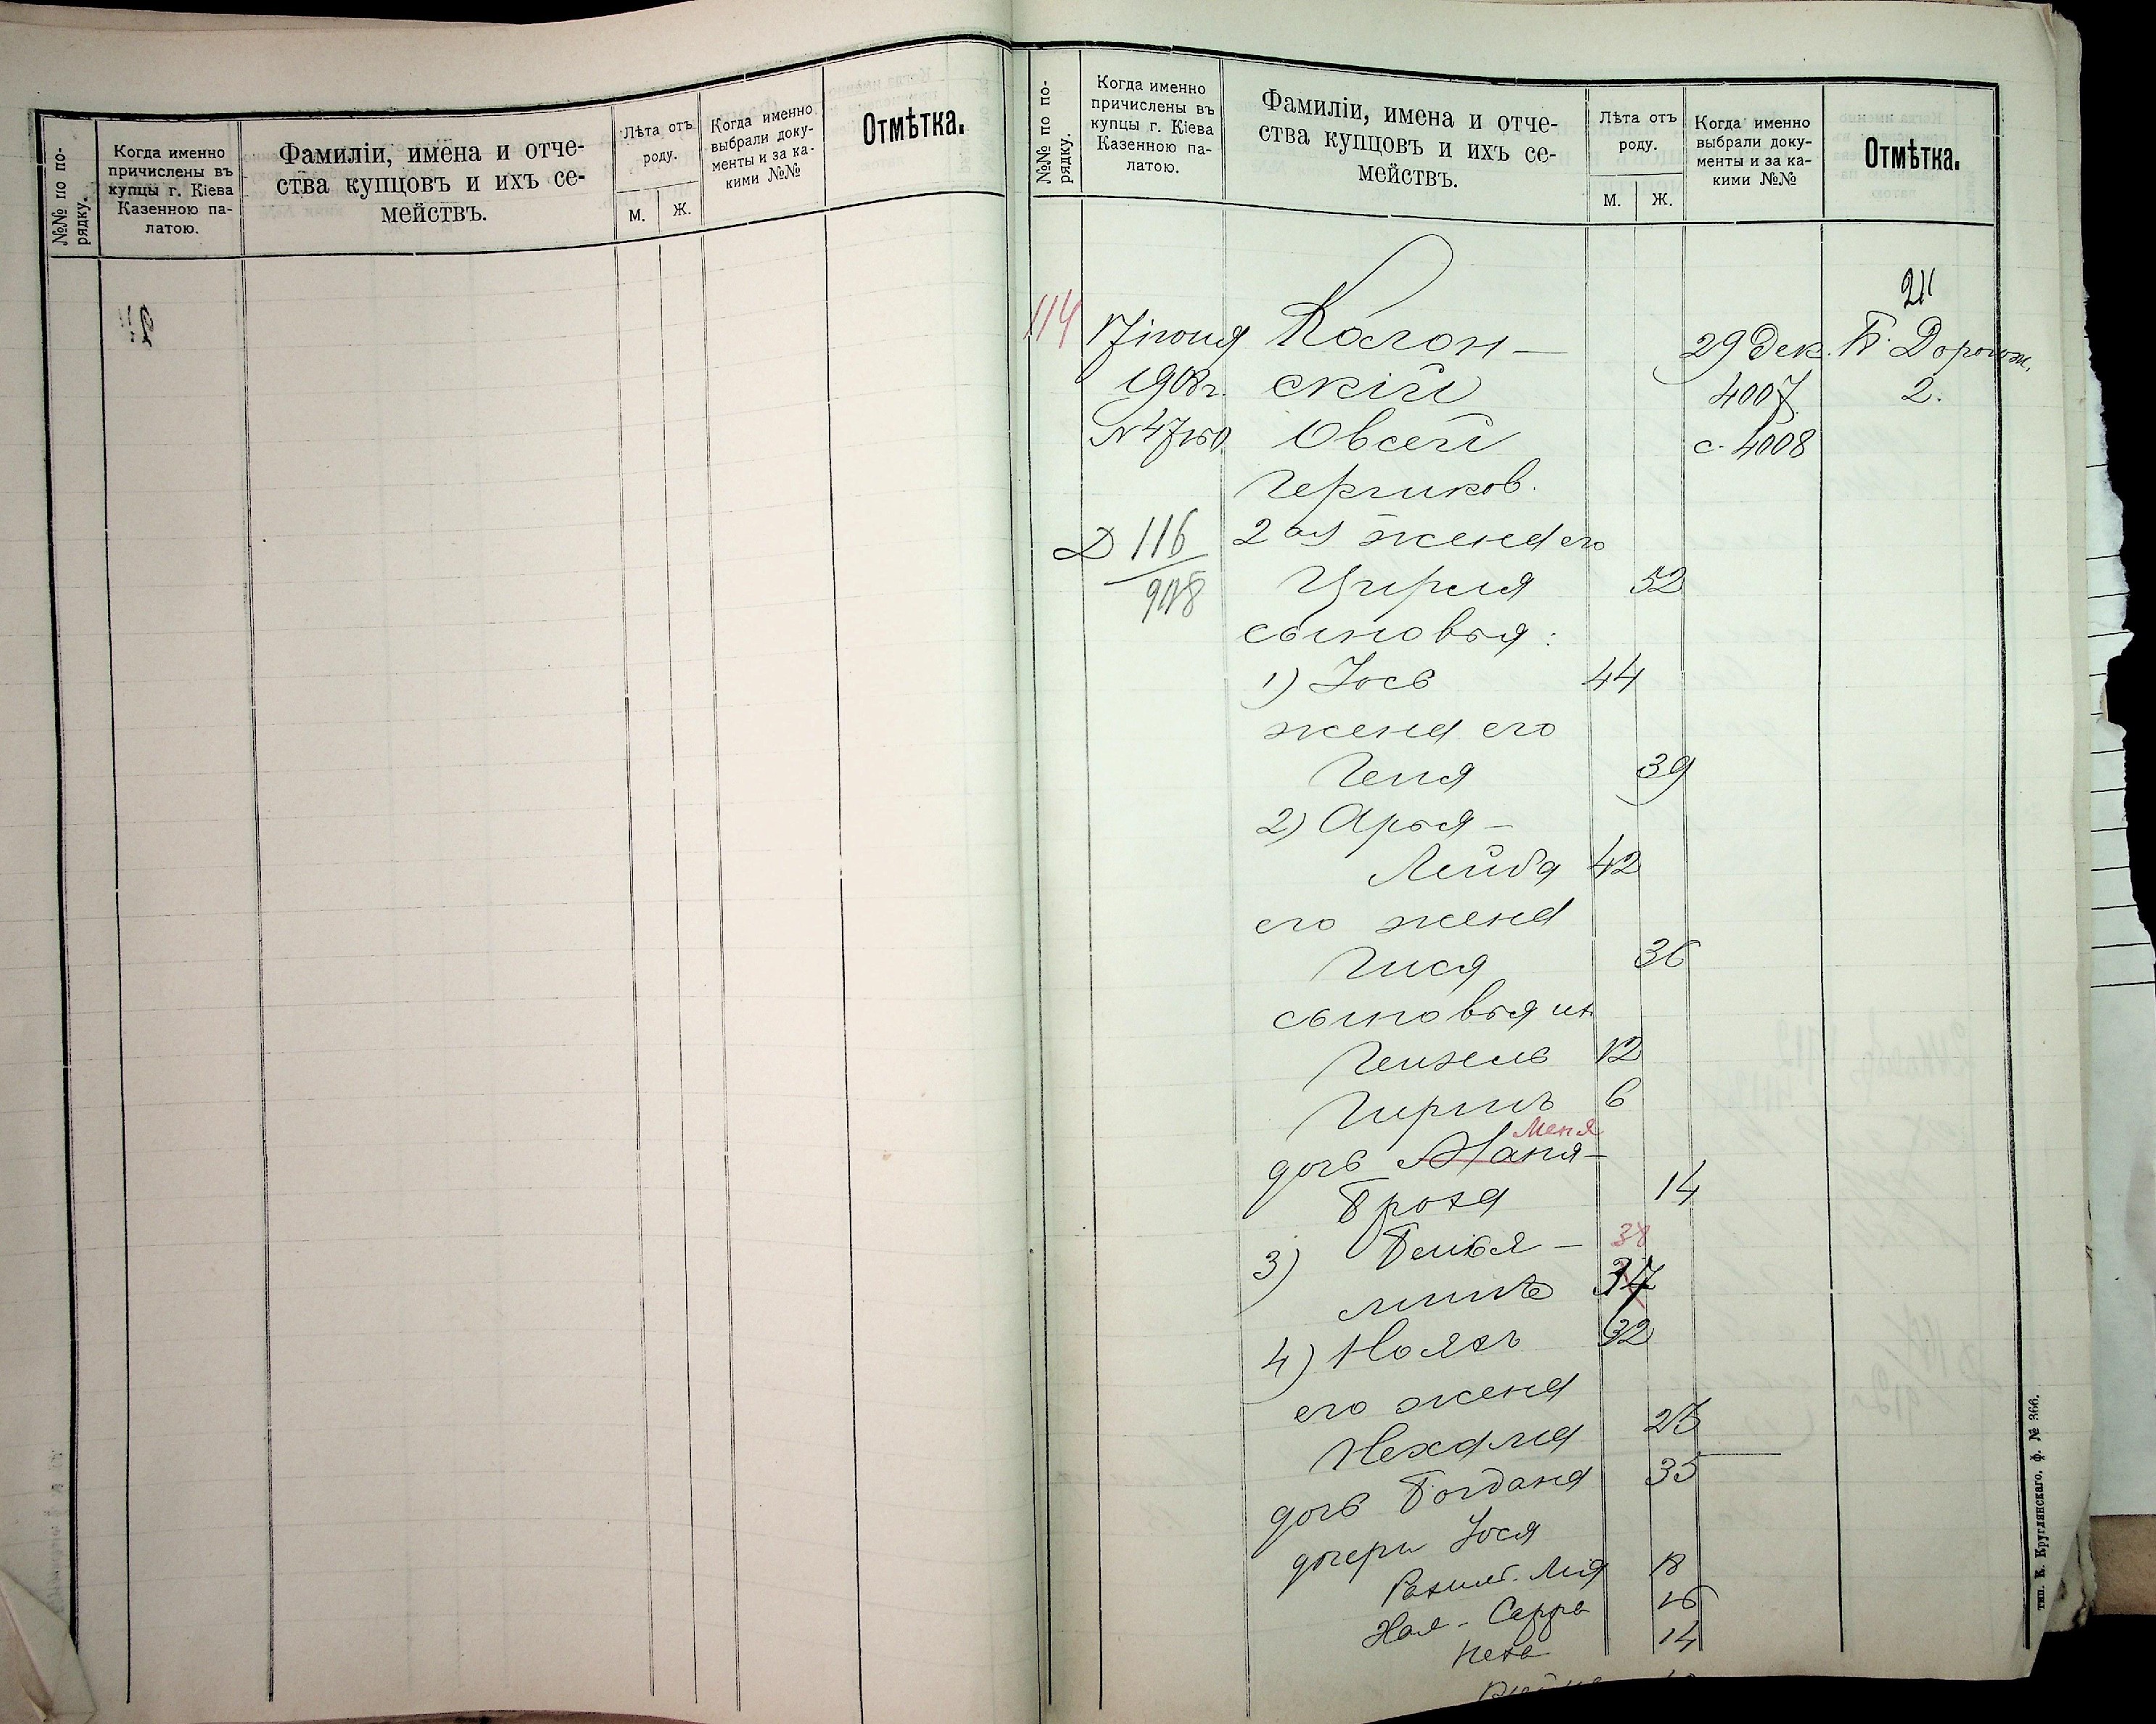 №№ по по-
рядку.
Когда именно
причислены въ
купцы г. Кіева
Казенною па-
латою.
Фамиліи, имена и отче-
ства купцовъ и ихъ се-
мействъ.
Лѣта отъ
роду.
М.
Ж.
Когда именно
выбрали доку-
менты и за ка-
кими №№
Отмѣтка.
№№ по по-
рядку.
Когда именно
причислены въ
купцы г. Кіева
Казенною па-
латою.
Фамиліи, имена и отче-
ства купцовъ и ихъ се-
мействъ.
Лѣта отъ
роду.
М.
Ж.
Когда именно
выбрали доку-
менты и за ка-
кими №№
Отмѣтка.
211
114 17 іюня Каган- 29 Дек. Б. Дорогож.
1908г. скій 4007 2.
Овсей с. 4008
Гершков.
Д 116 2ая жена его
908 Цирля 52
сыновья:
1) Іось 44
жена его
Геня 39
2) Арья-
Лейба 42
его жена
Гися 36
сыновья их
12
Гиршъ 6
Меня
дочь Маня-
Броха 14
3) Бенья- 38
минъ 37
4) Ноахъ 32
его жена
Нехама
дочь Богдана 35
дочери Іося
Лея 18
Хая-Сарра 16
14
тип. К. Круглянскаго. ф. № 366.